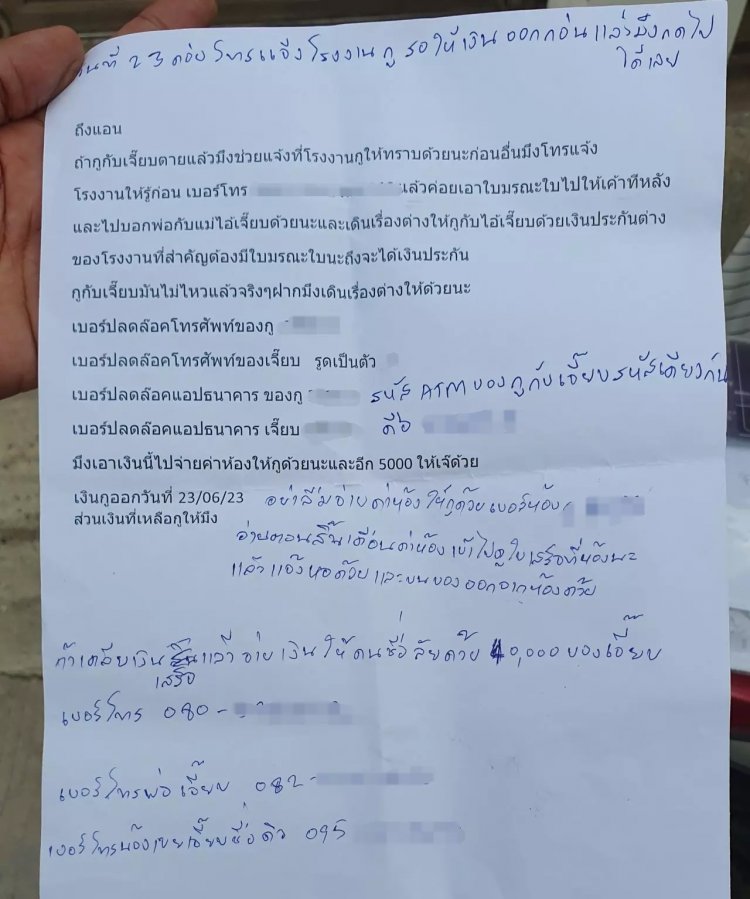 วันที่ 23 ค่อยโทรแจ้งโรงงานกู รอให้เงินออกก่อนแล้วมึงกดไป
ได้เลย
ถึงแอน
ถ้ากูกับเจี๊ยบตายแล้วมึงช่วยแจ้งที่โรงงานกูให้ทราบด้วยนะก่อนอื่นมึงโทรแจ้ง
โรงงานให้รู้ก่อน เบอร์โทร แล้วค่อยเอาใบมรณะใบไปให้เค้าทีหลัง
และไปบอกพ่อกับแม่ไอ้เจี๊ยบด้วยนะและเดินเรื่องต่างให้กูกับไอ้เจี๊ยบด้วยเงินประกันต่าง
ของโรงงานที่สำคัญต้องมีใบมรณะใบนะถึงจะได้เงินประกัน
กูกับเจี๊ยบมันไม่ไหวแล้วจริงๆฝากมึงเดินเรื่องต่างให้ด้วยนะ
เบอร์ปลดล๊อคโทรศัพท์ของกู
เบอร์ปลดล๊อคโทรศัพท์ของเจี๊ยบ รูดเป็นตัว
เบอร์ปลดล๊อคแอปธนาคาร ของกู รหัส ATM ของกูกับเจี๊ยบรหัสเดียวกัน
เบอร์ปลดล๊อคแอปธนาคาร เจี๊ยบ คือ
มึงเอาเงินนี้ไปจ่ายค่าห้องให้กูด้วยนะและอีก 5000 ให้เจ๊ด้วย
เงินกูออกวันที่ 23/06/23 อย่าลืมจ่ายค่าห้องให้กูด้วยเบอร์ห้อง
ส่วนเงินที่เหลือกูให้มึง
จ่ายตอนสิ้นเดือนค่าห้องเข้าไปดูใบเสร็จที่ห้องนะ
แล้วแจ้งหอด้วยและขนของออกจากห้องด้วย
ถ้าเคลียเงินเสร็จแล้วจ่ายเงินให้คนชื่อ ด้วย 10,000 ของเจี๊ยบ
เบอร์โทร 080-
เบอร์โทรพ่อเจี๊ยบ 082-
เบอร์โทรน้องเขยเจี๊ยบชื่อ 095